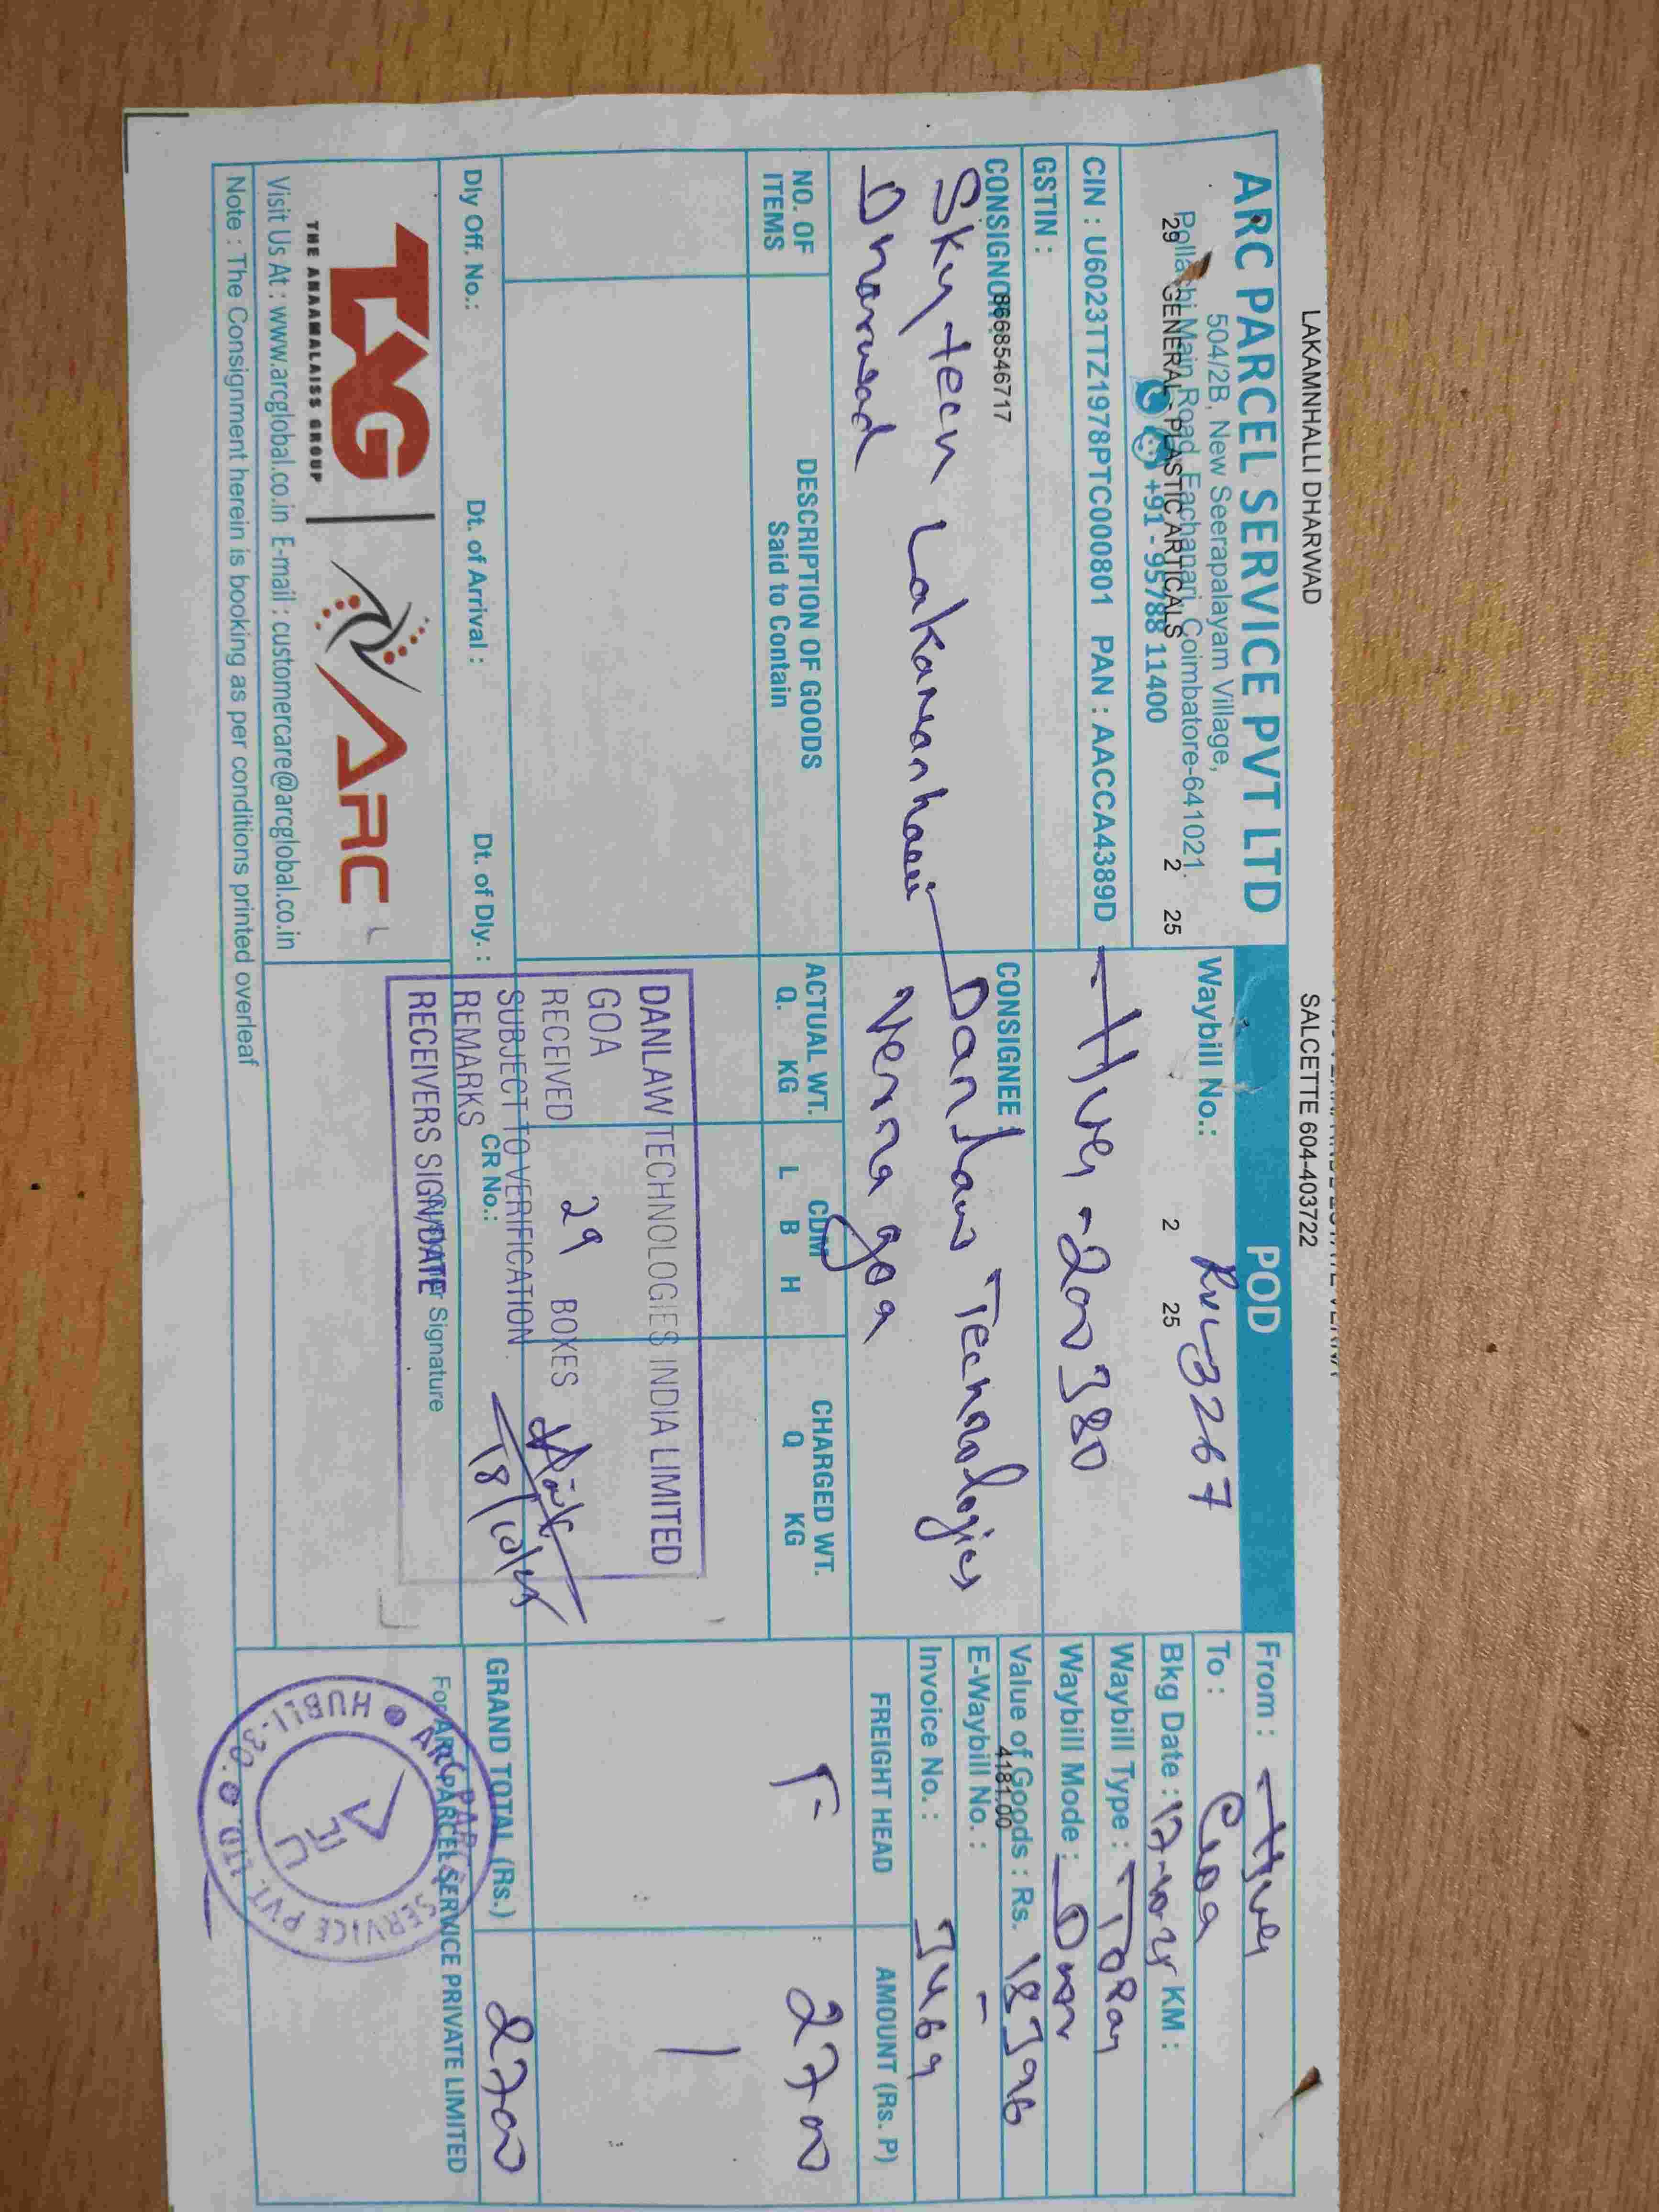 LAKAMNHALLI DHARWAD
SALCETTE 604-403722
ARC PARCEL SERVICE PVT LTD
504/2B, New Seerapalayam Village,
Pollachi Main Road, Eachanari, Coimbatore-641021.
29 GENERAL - PLASTIC ARTICALS 2 25
+91 - 95788 11400
CIN : U6023TTZ1978PTC000801 PAN : AACCA4389D
GSTIN :
POD
Waybill No.: 3267
2 25
200380
From :
To : Goa
Bkg Date : 17-10-25 KM :
Waybill Type : ToPay
Waybill Mode :
Value of Goods : Rs. 18396
4181.00
E-Waybill No. : -
Invoice No. : 3469
CONSIGNOR 8668546717
Skytech Lakamanhalli
Dharwad
CONSIGNEE :
Danlaw Technologies
Verna goa
NO. OF ITEMS
DESCRIPTION OF GOODS
Said to Contain
ACTUAL WT.
Q. KG
CDM
L B H
CHARGED WT.
Q KG
FREIGHT HEAD
AMOUNT (Rs. P)
F 2700
DANLAW TECHNOLOGIES INDIA LIMITED
GOA
RECEIVED 29 BOXES
SUBJECT TO VERIFICATION
REMARKS
RECEIVERS SIGN/DATE
18/10/25
Dly Off. No.: Dt. of Arrival : Dt. of Dly. : CR No.:
Signature
GRAND TOTAL (Rs.) 2700
For ARC PARCEL SERVICE PRIVATE LIMITED
ARC PARCEL SERVICE PVT. LTD. HUBLI-30.
TAG
THE ANAMALAISS GROUP
ARC
Visit Us At : www.arcglobal.co.in E-mail : customercare@arcglobal.co.in
Note : The Consignment herein is booking as per conditions printed overleaf